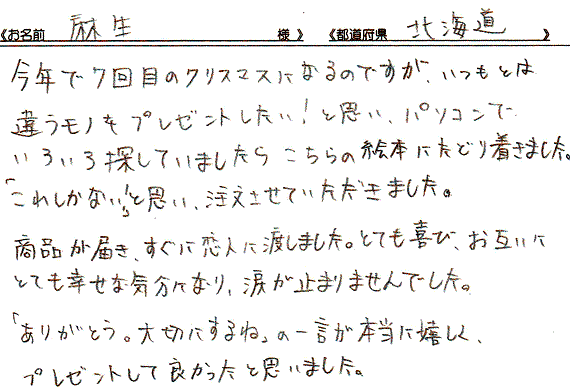 《お名前 麻生 様 》 《都道府県 北海道 》
今年で7回目のクリスマスになるのですが、いつもとは
違うモノをプレゼントしたい！と思い、パソコンで
いろいろ探していましたら こちらの絵本にたどり着きました。
「これしかない！」と思い、注文させていただきました。
商品が届き、すぐに恋人に渡しました。とても喜び、お互いに
とても幸せな気分になり、涙が止まりませんでした。
「ありがとう。大切にするね」の一言が本当に嬉しく、
プレゼントして良かったと思いました。